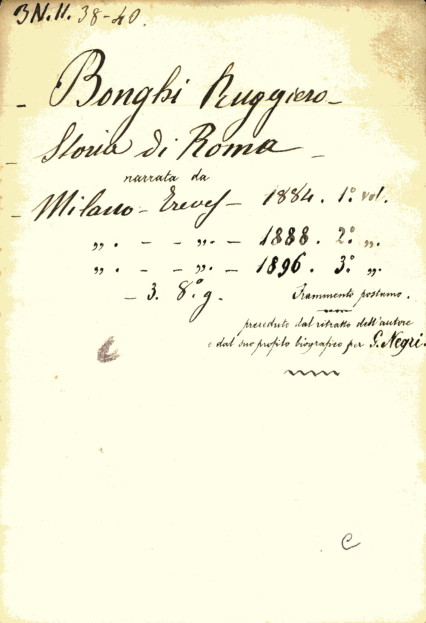 3 N. 11. 38-40.
Bonghi Ruggiero -
Storia di Roma -
narrata da
Milano - Treves - 1884. 1.° vol.
„ . - - „ . - 1888. 2.° „.
„ . - - „ . - 1896. 3.° „.
- 3. 8.° g. Frammento postumo.
preceduto dal ritratto dell'autore
e dal suo profilo biografico per G. Negri.
C